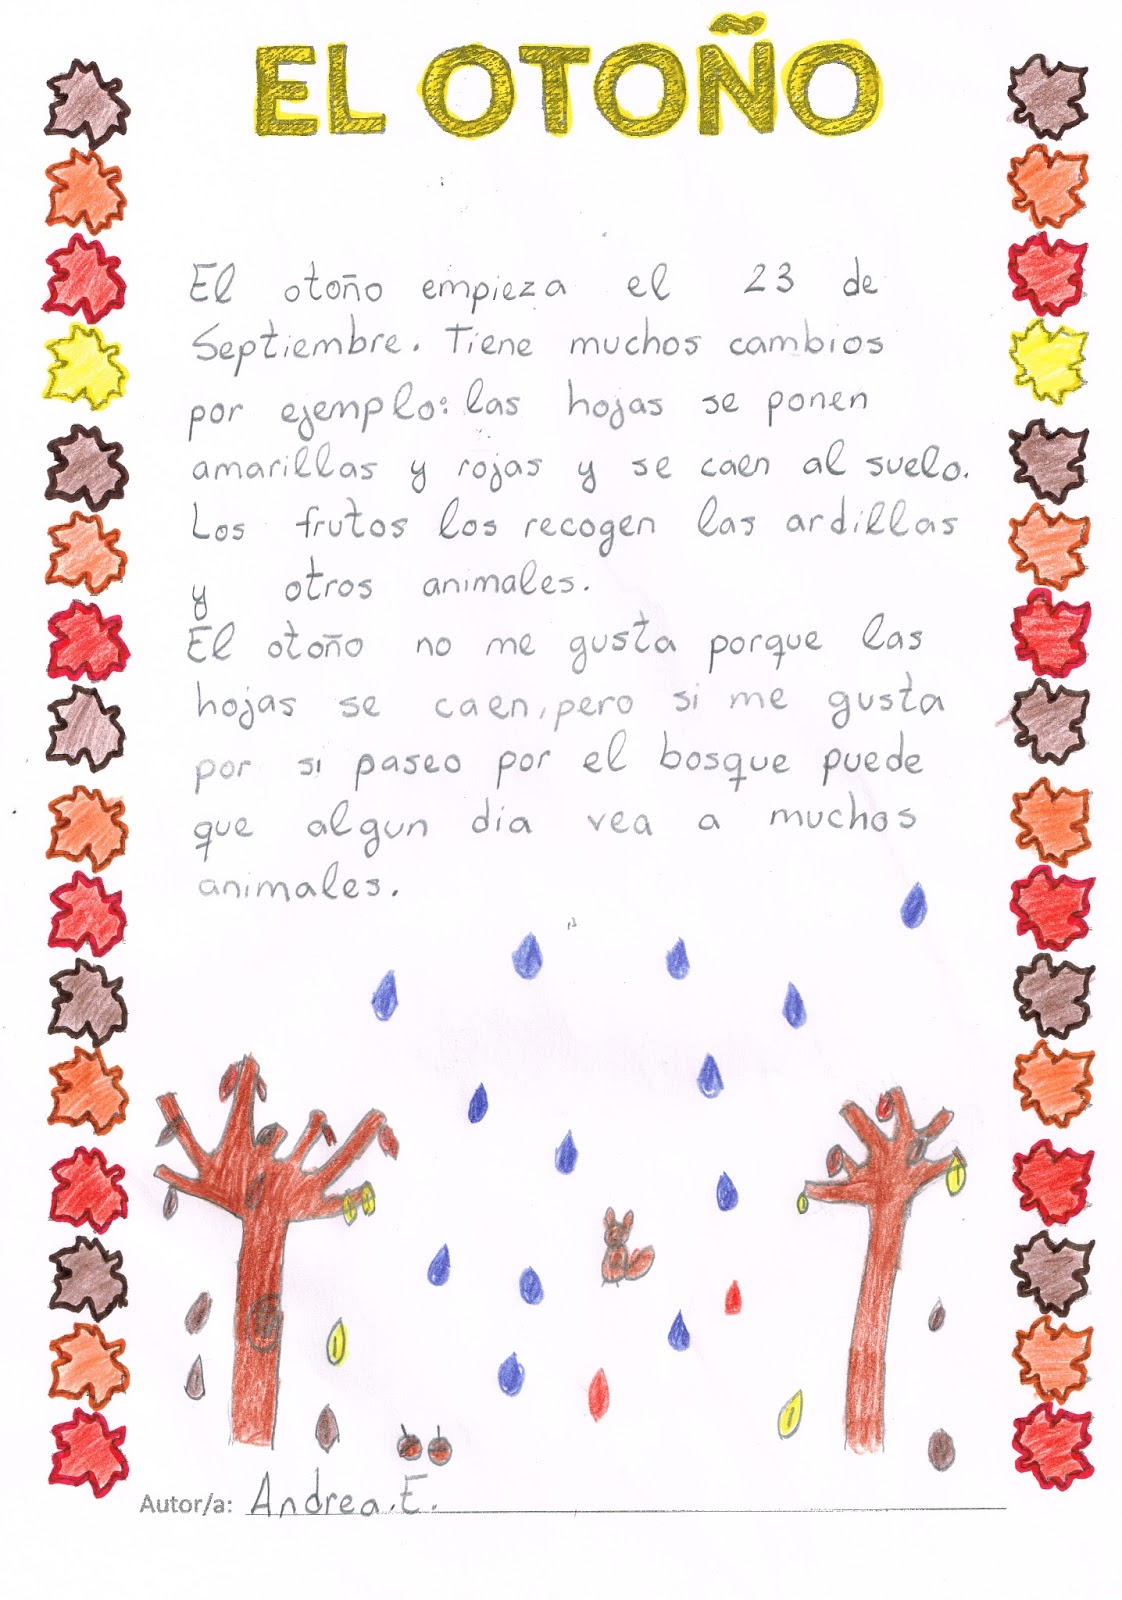 EL OTOÑO
El otoño empieza el 23 de
Septiembre. Tiene muchos cambios
por ejemplo: las hojas se ponen
amarillas y rojas y se caen al suelo.
Los frutos los recogen las ardillas
y otros animales.
El otoño no me gusta porque las
hojas se caen, pero si me gusta
por si paseo por el bosque puede
que algun dia vea a muchos
animales.
Autor/a: Andrea.E.